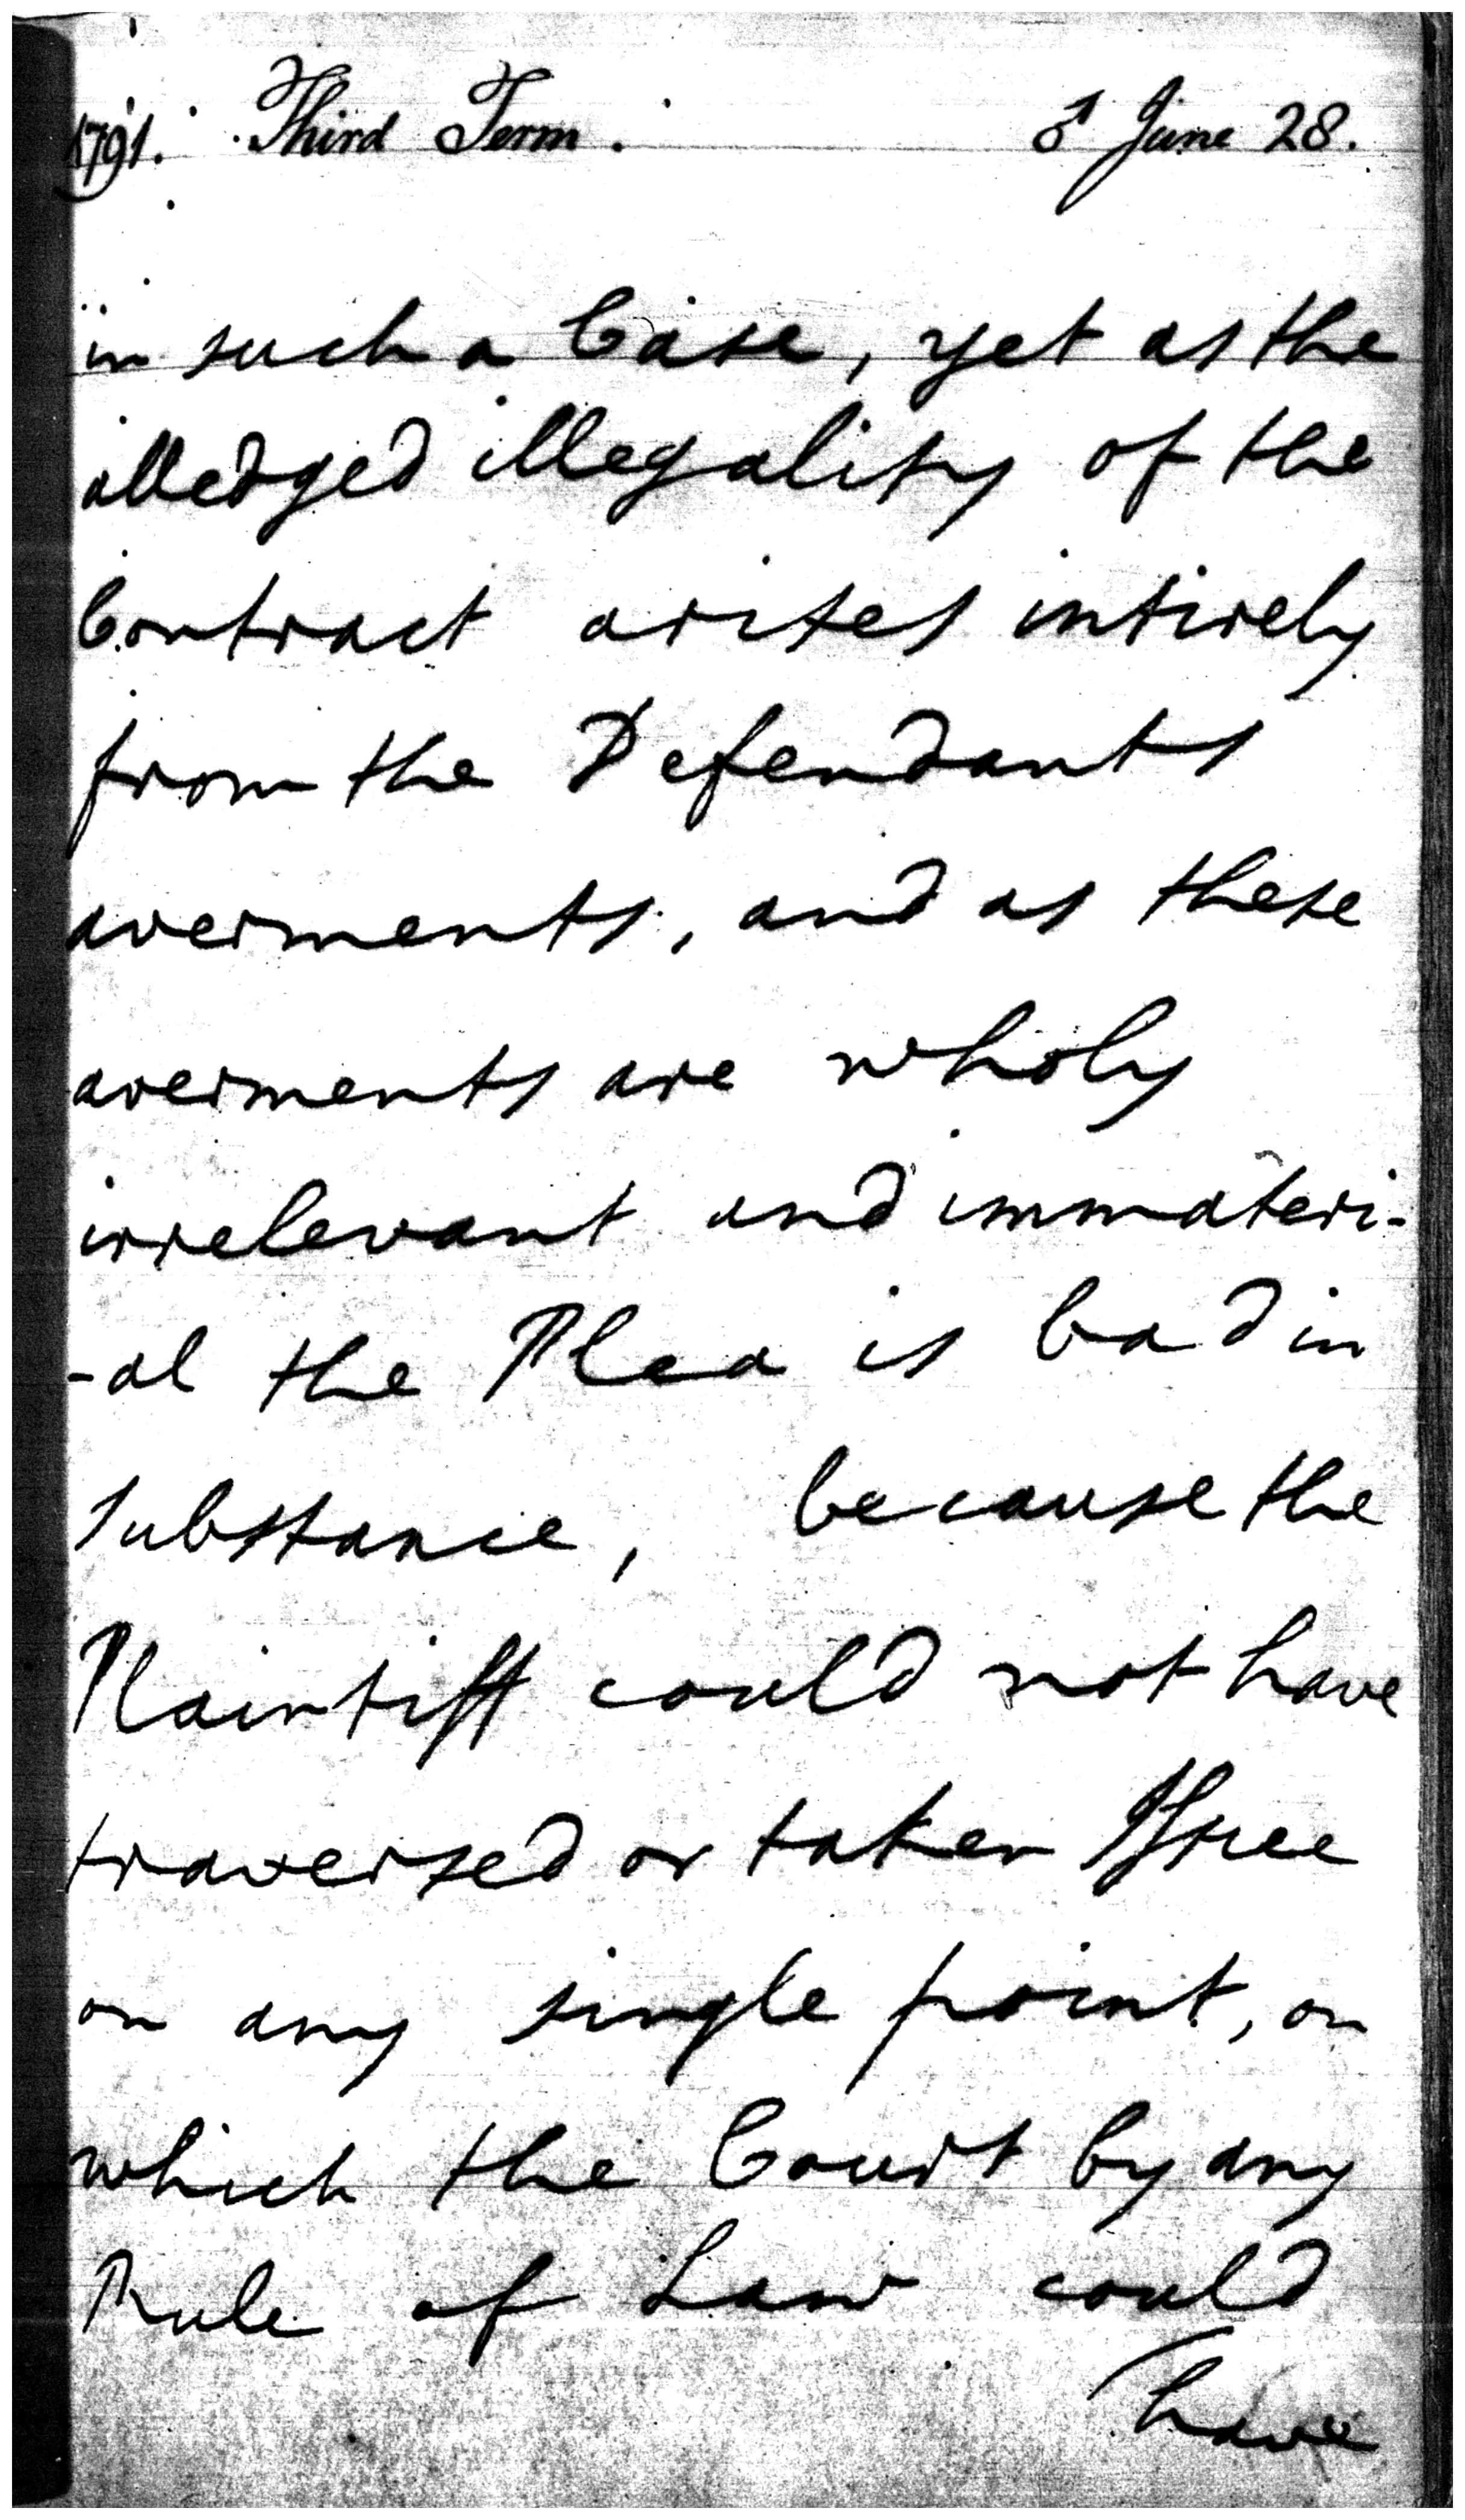 1791. Third Term. ♂ June 28.
in such a Case, yet as the
alledged illegality of the
Contract arises intirely
from the Defendants
averments, and as these
averments are wholy
irrelevant and immateri-
-al the Plea is bad in
Substance, because the
Plaintiff could not have
traversed or taken Issue
on any single point, on
which the Court by any
Rule of Law could
have